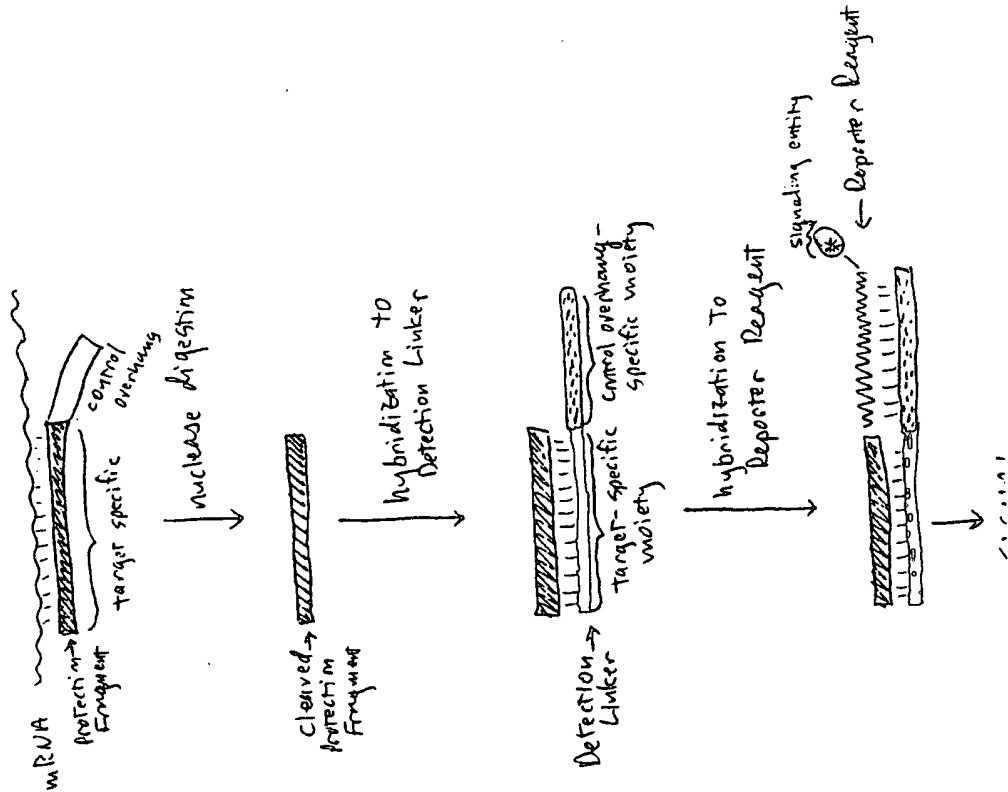 mRNA
Protection →
Fragment
target specific
control
overhang
nuclease digestion
Cleaved →
Protection
Fragment
hybridization to
Detection Linker
Detection →
Linker
target-specific
moiety
control overhang-
specific moiety
hybridization To
Reporter Reagent
signaling entity
← Reporter Reagent